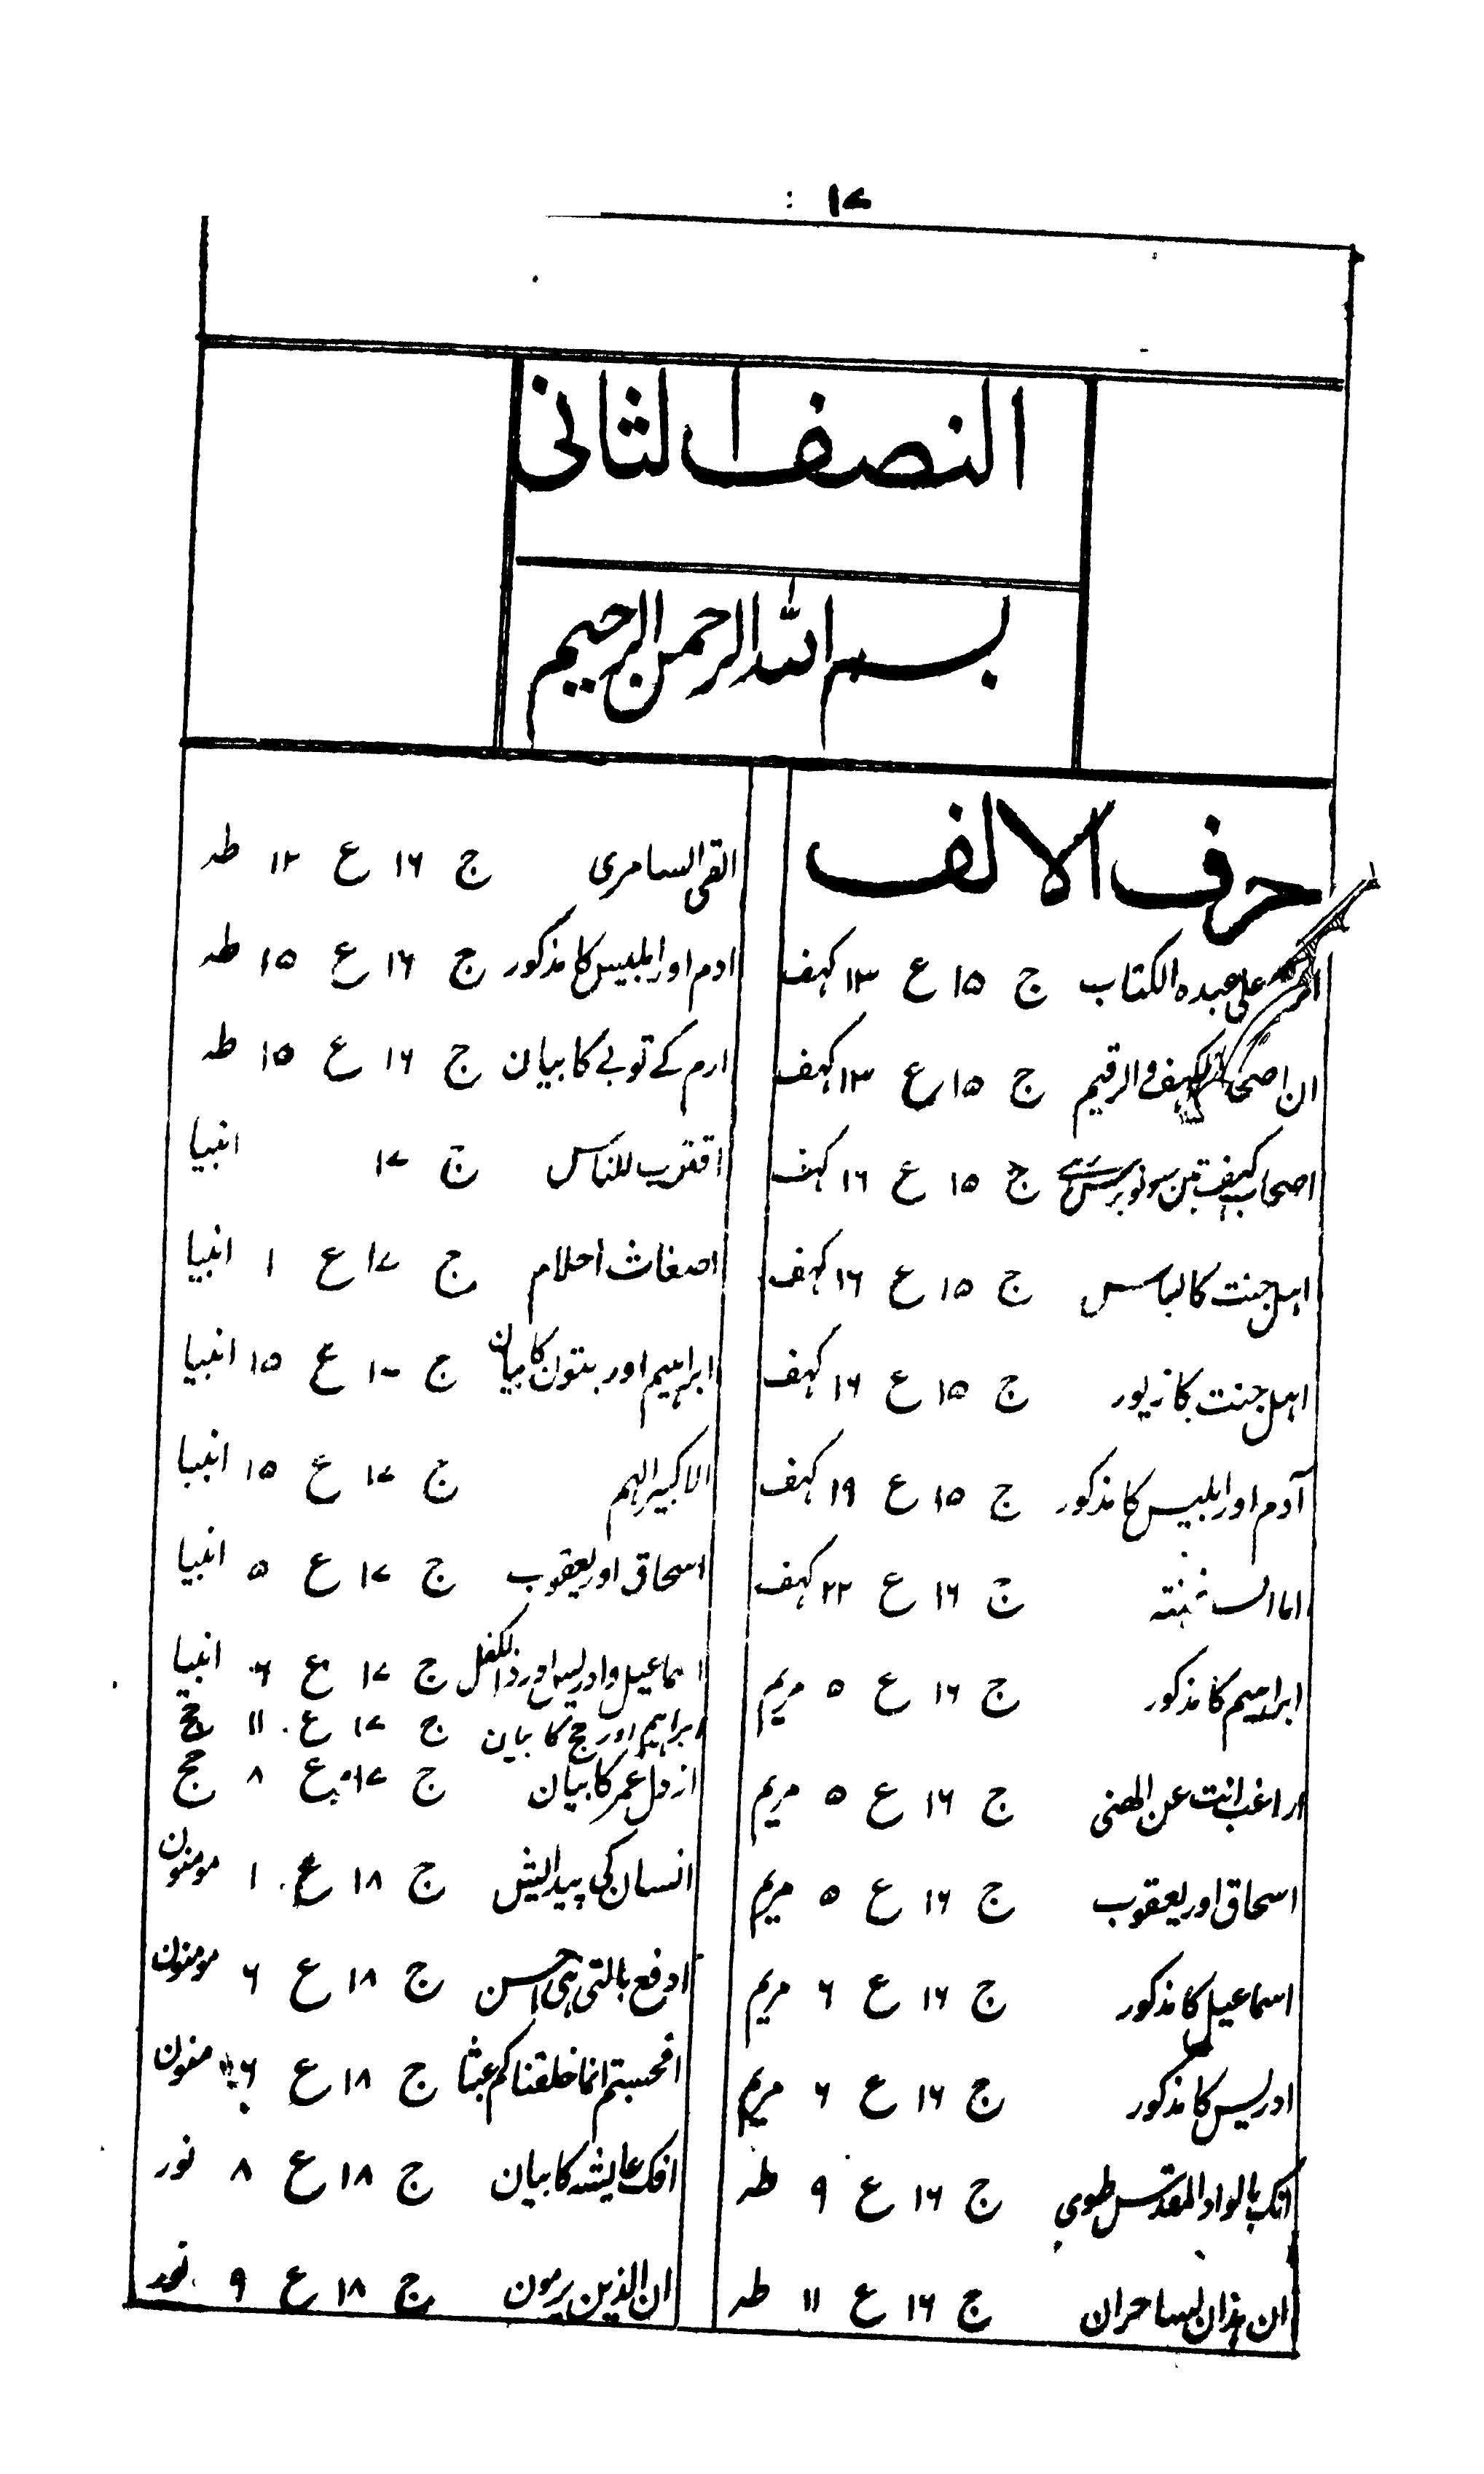 ۱۷
النصف الثانی
بسم اللہ الرحمن الرحیم
حرف الالف
علی عبدہ الکتاب ج ۱۵ ع ۱۳ کہف
ان اصحاب الکہف والرقیم ج ۱۵ ع ۱۳ کہف
اصحاب کہف تین سو نو برس ج ۱۵ ع ۱۶ کہف
اہل جنت کا لباس ج ۱۵ ع ۱۶ کہف
اہل جنت کا زیور ج ۱۵ ع ۱۶ کہف
آدم اور ابلیس کا مذکور ج ۱۵ ع ۱۹ کہف
اما السفینتہ ج ۱۶ ع ۲۲ کہف
ابراہیم کا مذکور ج ۱۶ ع ۵ مریم
اراغب انت عن الھتی ج ۱۶ ع ۵ مریم
اسحاق اور یعقوب ج ۱۶ ع ۵ مریم
اسماعیل کا مذکور ج ۱۶ ع ۶ مریم
ادریس کا مذکور ج ۱۶ ع ۶ مریم
انک بالواد المقدس طوی ج ۱۶ ع ۹ طہ
ان ہذان لساحران ج ۱۶ ع ۱۱ طہ
القی السامری ج ۱۶ ع ۱۳ طہ
ادم اور ابلیس کا مذکور ج ۱۶ ع ۱۵ طہ
ارم کے توبے کا بیان ج ۱۶ ع ۱۵ طہ
اقترب للناس ج ۱۷ انبیا
اضغاث احلام ج ۱۷ ع ۱ انبیا
ابراہیم اور بتون کا بیان ج ۱۰ ع ۱۵ انبیا
الا کبیرالہم ج ۱۷ ع ۱۵ انبیا
اسحاق اور یعقوب ج ۱۷ ع ۵ انبیا
اسماعیل وادریس اور ذالکفل ج ۱۷ ع ۶ انبیا
ابراہیم اور حج کا بیان ج ۱۷ ع ۱۱ حج
ارذل عمر کا بیان ج ۱۷ ع ۸ حج
انسان کی پیدالیش ج ۱۸ ع ۱ مومنون
ادفع بالتی ہی احسن ج ۱۸ ع ۶ مومنون
افحسبتم انما خلقناکم عبثا ج ۱۸ ع ۶ منون
افک عایشہ کا بیان ج ۱۸ ع ۸ نور
ان الذین یرمون ج ۱۸ ع ۹ نور